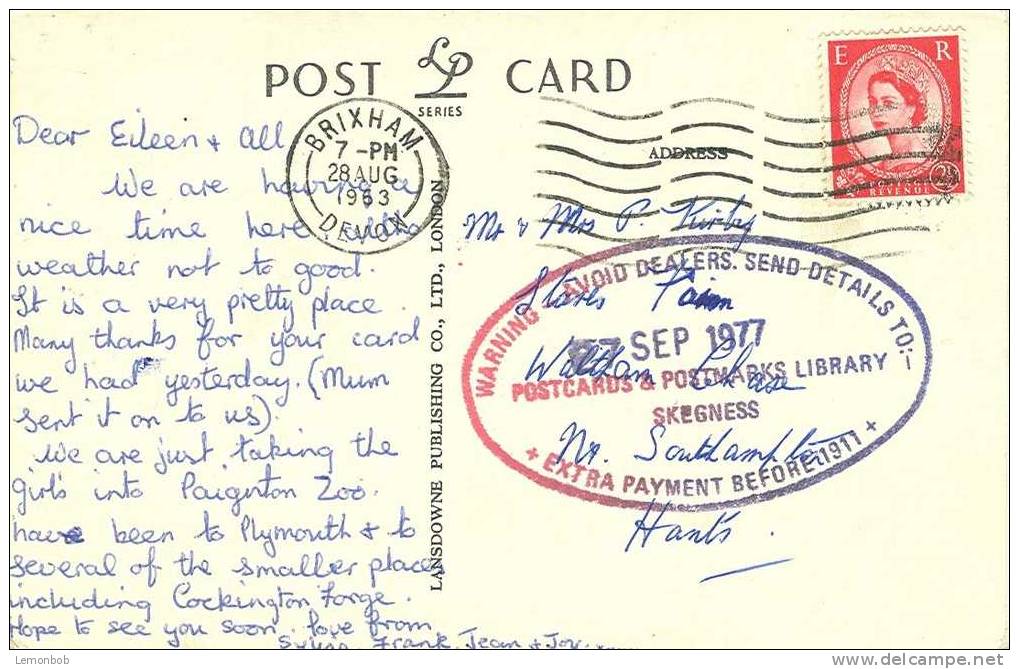 POST LP CARD
SERIES
E R
POSTAGE
REVENUE
2½
BRIXHAM
7-PM
28 AUG
1963
DEVON
ADDRESS
Dear Eileen & All
We are having a
nice time here. Altho
weather not to good.
It is a very pretty place.
Many thanks for your card
we had yesterday. (Mum
sent it on to us).
We are just taking the
girls into Paignton Zoo.
have been to Plymouth & to
several of the smaller places
including Cockington Forge.
Hope to see you soon. love from
Frank, Jean & Joy.
LANSDOWNE PUBLISHING CO., LTD., LONDON
Mr & Mrs P. Kirby
Farm
Waltham Chase
Nr. Southampton
Hants.
WARNING - AVOID DEALERS. SEND DETAILS TO:-
SEP 1977
POSTCARDS & POSTMARKS LIBRARY
SKEGNESS
+ EXTRA PAYMENT BEFORE 1911 +
© Lemonbob
delcampe.net